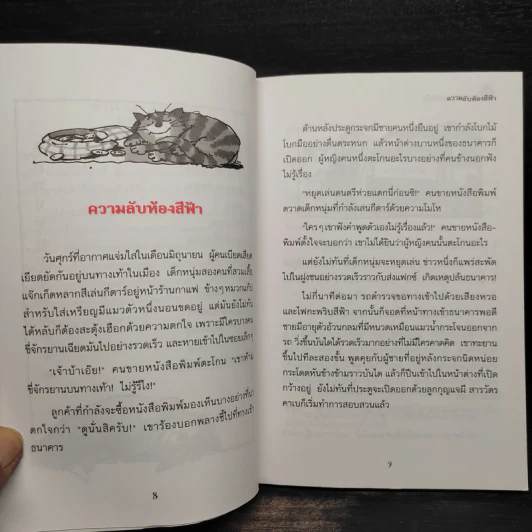 ความลับห้องสีฟ้า
วันศุกร์ที่อากาศแจ่มใสในเดือนมิถุนายน ผู้คนเบียดเสียด
เยียดยัดกันอยู่บนทางเท้าในเมือง เด็กหนุ่มสองคนที่สวมเสื้อ
แจ๊กเก็ตหลากสีเล่นกีตาร์อยู่หน้าร้านกาแฟ ข้างๆหมวกแก๊ป
สำหรับใส่เหรียญมีแมวตัวหนึ่งนอนขดอยู่ แต่มันยังไม่ทัน
ได้หลับก็ต้องสะดุ้งเฮือกด้วยความตกใจ เพราะมีใครบางคน
ขี่จักรยานเฉียดมันไปอย่างรวดเร็ว และหายเข้าไปในซอยเล็กๆ
"เจ้าบ้าเอ๊ย!" คนขายหนังสือพิมพ์ตะโกน "เขาห้าม
ขี่จักรยานบนทางเท้า! ไม่รู้รึไง!"
ลูกค้าที่กำลังจะซื้อหนังสือพิมพ์มองเห็นบางอย่างที่น่า
ตกใจกว่า "ดูนั่นสิครับ!" เขาร้องบอกพลางชี้ไปที่ทางเข้า
ธนาคาร
8
ความลับห้องสีฟ้า
ด้านหลังประตูกระจกมีชายคนหนึ่งยืนอยู่ เขากำลังโบกไม้
โบกมืออย่างตื่นตระหนก แล้วหน้าต่างบานหนึ่งของธนาคารก็
เปิดออก ผู้หญิงคนหนึ่งตะโกนอะไรบางอย่างที่คนข้างนอกฟัง
ไม่รู้เรื่อง
"หยุดเล่นดนตรีห่วยแตกนี่ก่อนซิ!" คนขายหนังสือพิมพ์
ตวาดเด็กหนุ่มที่กำลังเล่นกีตาร์ด้วยความโมโห
"ใครๆ เขาฟังคำพูดตัวเองไม่รู้เรื่องแล้ว!" คนขายหนังสือ-
พิมพ์ตั้งใจจะบอกว่า เขาไม่ได้ยินว่าผู้หญิงคนนั้นตะโกนอะไร
แต่ยังไม่ทันที่เด็กหนุ่มจะหยุดเล่น ข่าวหนึ่งก็แพร่สะพัด
ไปในฝูงชนอย่างรวดเร็วราวกับส่งแฟกซ์ เกิดเหตุปล้นธนาคาร!
ไม่กี่นาทีต่อมา รถตำรวจขอทางเข้าไปด้วยเสียงหวอ
และไฟกะพริบสีฟ้า จากนั้นก็จอดที่หน้าทางเข้าธนาคารพอดี
ชายมีอายุตัวอ้วนกลมที่มีหนวดเหมือนแมวน้ำกระโจนออกจาก
รถ วิ่งขึ้นบันไดได้รวดเร็วมากอย่างที่ไม่มีใครคาดคิด เขาทะยาน
ขึ้นไปทีละสองขั้น พูดคุยกับผู้ชายที่อยู่หลังกระจกนิดหน่อย
กระโดดหันซ้ายหันขวาบนบันได แล้วก็ปีนเข้าไปในหน้าต่างที่เปิด
กว้างอยู่ ยังไม่ทันที่ประตูจะเปิดออกด้วยลูกกุญแจผี สารวัตร
คาเบก็เริ่มทำการสอบสวนแล้ว
9